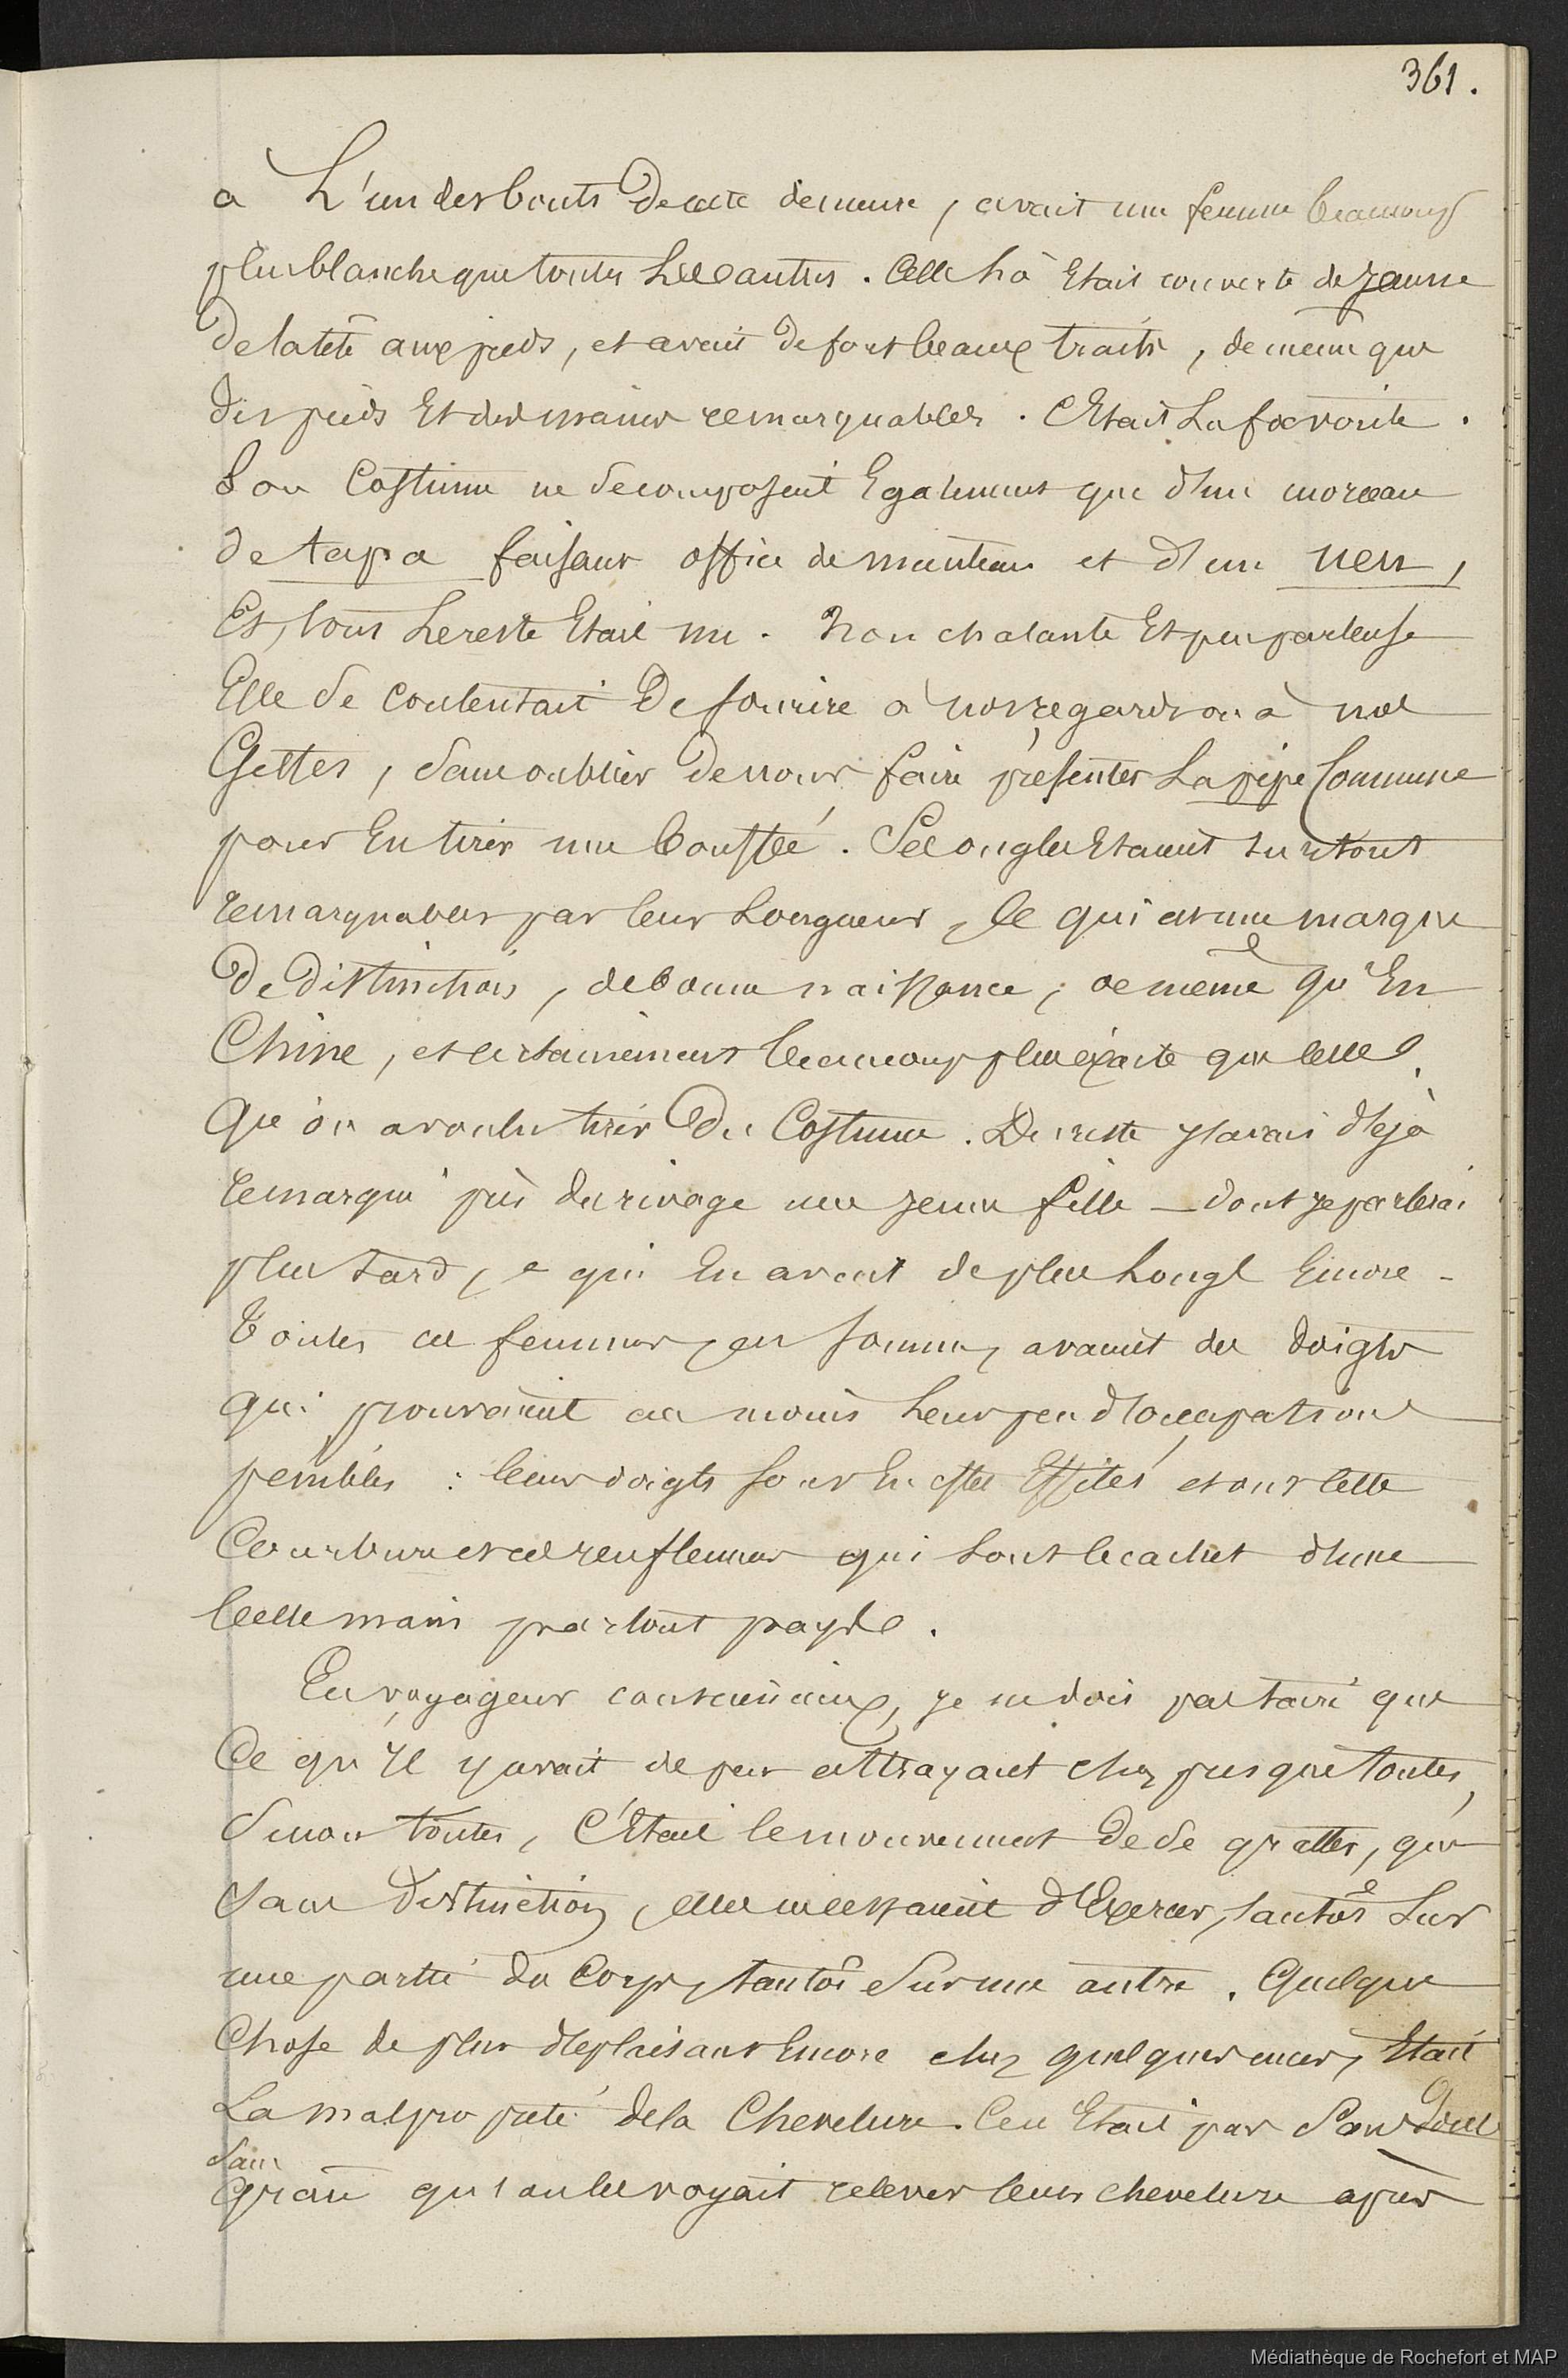 361.
a L'un des bouts de cette demeure, avait une femme beaucoup
plus blanche que toutes Les autres. Celle là Etait couverte de jaune
De la tête aux pieds, et avait de fort beaux traits, de même que
des pieds Et des mains remarquables. C'Etait La favorite.
Son Costume ne se composait Egalement que d'un morceau
de tapa faisant office de manteau et d'un neu,
Et, tout Le reste Etait nu. Nonchalante Et peu parleuse
Elle se contentait De sourire à nos regards ou à nos
Gestes, sans oublier de nous faire présenter La pipe Commune
pour En tirer une bouffée. Ses ongles Etaient surtout
remarquables par leur Longueur, Ce qui est une marque
De Distinction, de bonne naissance, de même qu'En
Chine, et certainement beaucoup plus éxacte que celle
Qu'on a voulu tirer Du Costume. Du reste j'avais déjà
remarqué près du rivage une jeune fille — dont je parlerai
plus tard, & qui En avait de plus Longs Encore -
Toutes ces femmes, en somme, avaient des doigts
qui prouvaient au moins Leur peu d'occupations
penibles : leurs doigts sont En effet Effilés et ont cette
Courbure et ces renflemens qui sont le cachet d'une
belle main partout pays.
En voyageur consciencieux, je ne dois pas taire que
Ce qu'Il y avait de peu attrayant chez presque toutes,
Sinon toutes, C'Etait le mouvement de se gratter, que
Sans distinction, elles ne cessaient d'Exercer, tantôt Sur
une partie du Corps, tantôt Sur une autre. Quelque
Chose de plus déplaisant Encore chez quelques unes, Etait
La malpropreté de la Chevelure. Ce n'Etait pas Sans
Sans
qu'on les voyait relever leur chevelure après